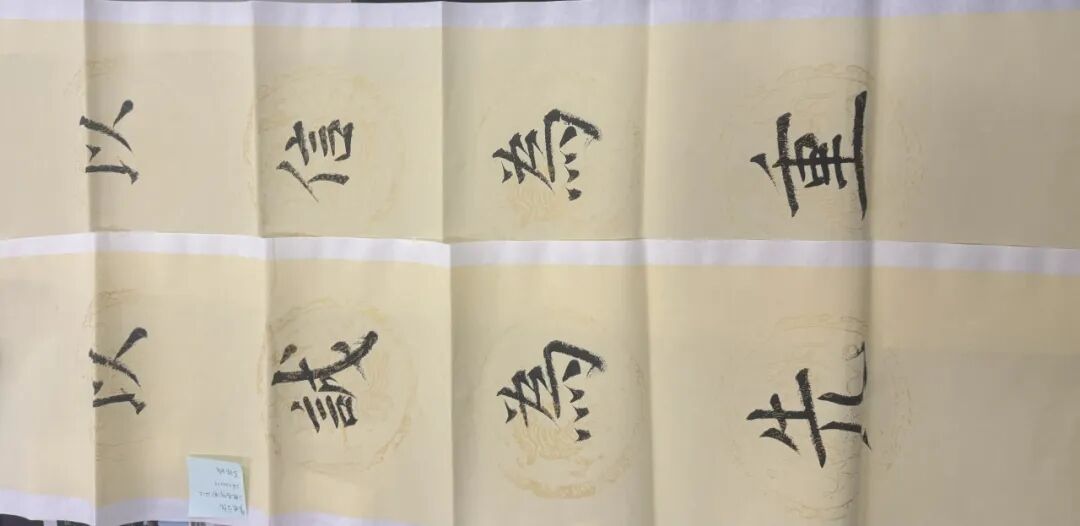 以信為重
以誠為先